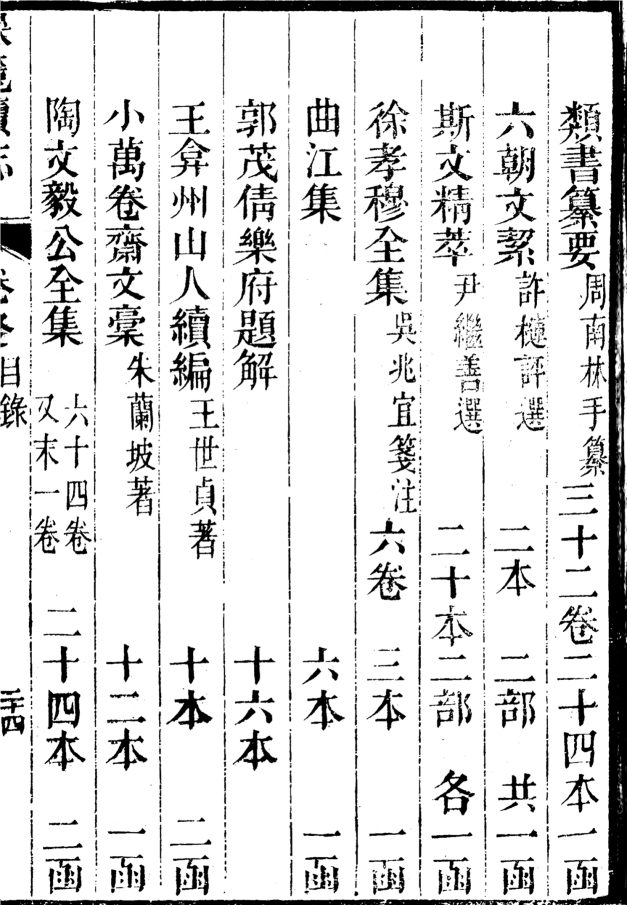 類書纂要周南林手纂三十二卷二十四本一函
六朝文絜許槤評選二本二部共一函
斯文精萃尹繼善選二十本二部各一函
徐孝穆全集吳兆宜箋注六卷三本一函
曲江集六本一函
郭茂倩樂府題解十六本
王弇州山人續編王世貞著十本二函
小萬卷齋文稾朱蘭坡著十二本一函
陶文毅公全集六十四卷又末一卷二十四本二函
續志 目錄 三十四